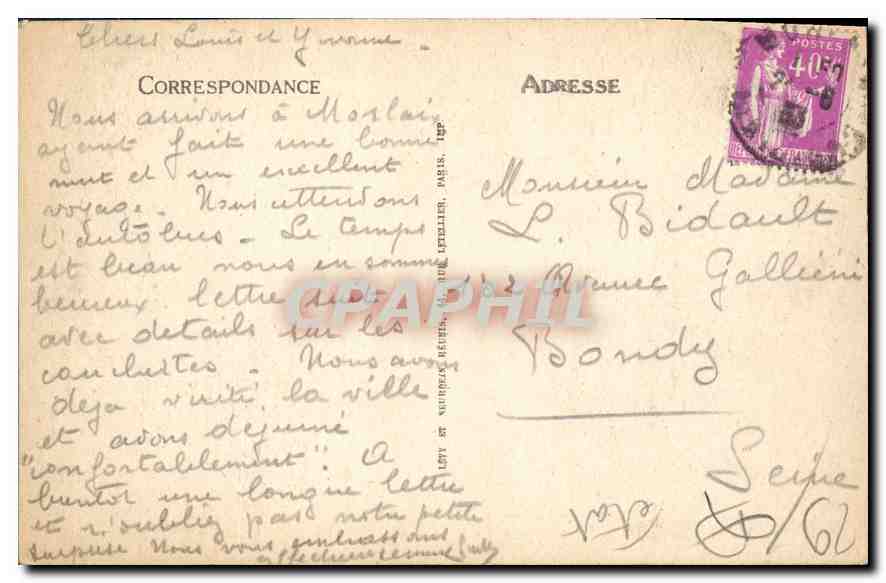 Chers Louis et Yvonne -
CORRESPONDANCE
Nous arrivons à Morlaix
ayant fait une bonne
nuit et un excellent
voyage. Nous attendons
l'autobus - Le temps
est beau nous en sommes
heureux lettre suit
avec details sur les
couchettes - Nous avons
deja visité la ville
et avons dejeuné
"confortablement". A
bientot une longue lettre
et n'oubliez pas notre petite
surprise Nous vous embrassons
affectueusement
LÉVY ET NEURDEIN RÉUNIS, 44, RUE LETELLIER, PARIS, IMP.
ADRESSE
POSTES
40c
Monsieur Madame
L. Bidault
Avenue Galliéni
Bondy
Seine
62
CPAPHIL